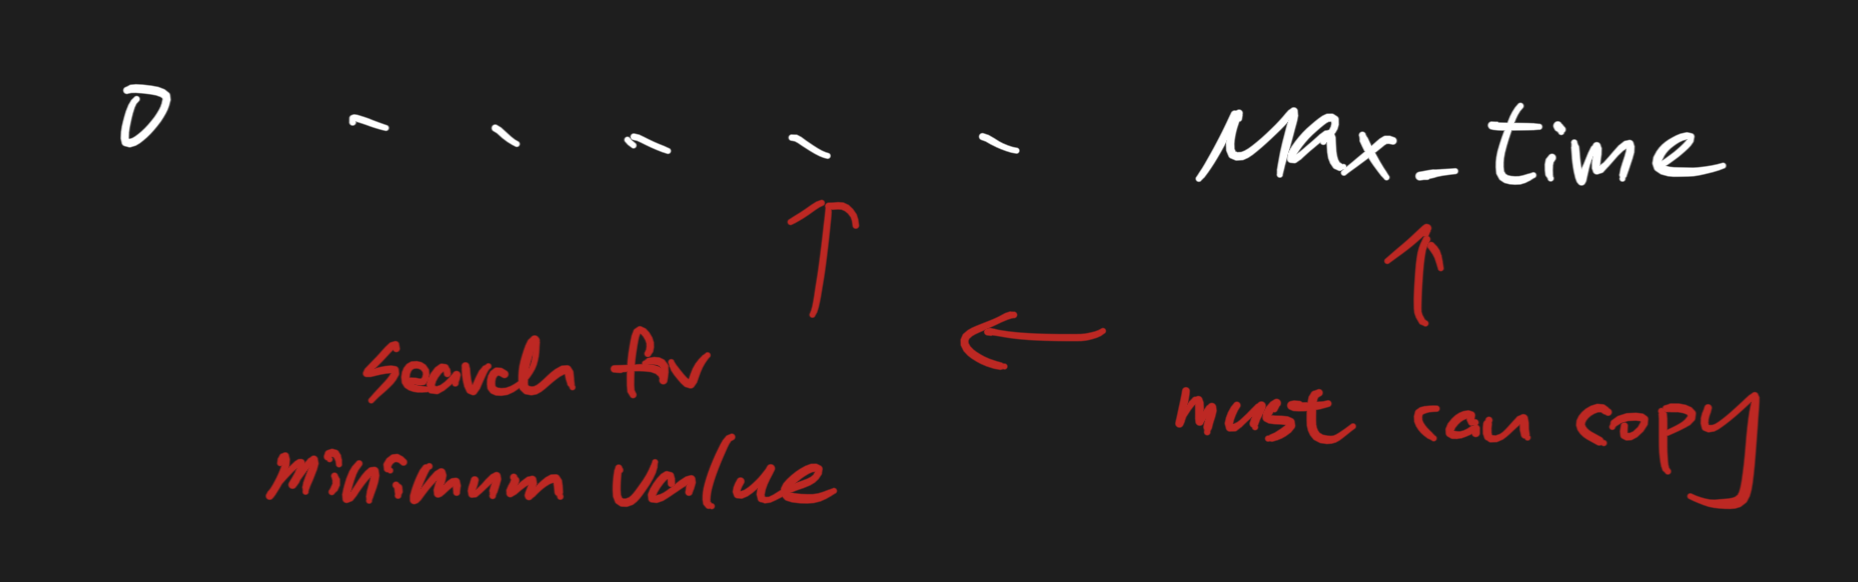 0 - - - - - Max_time
search for
minimum value
must can copy